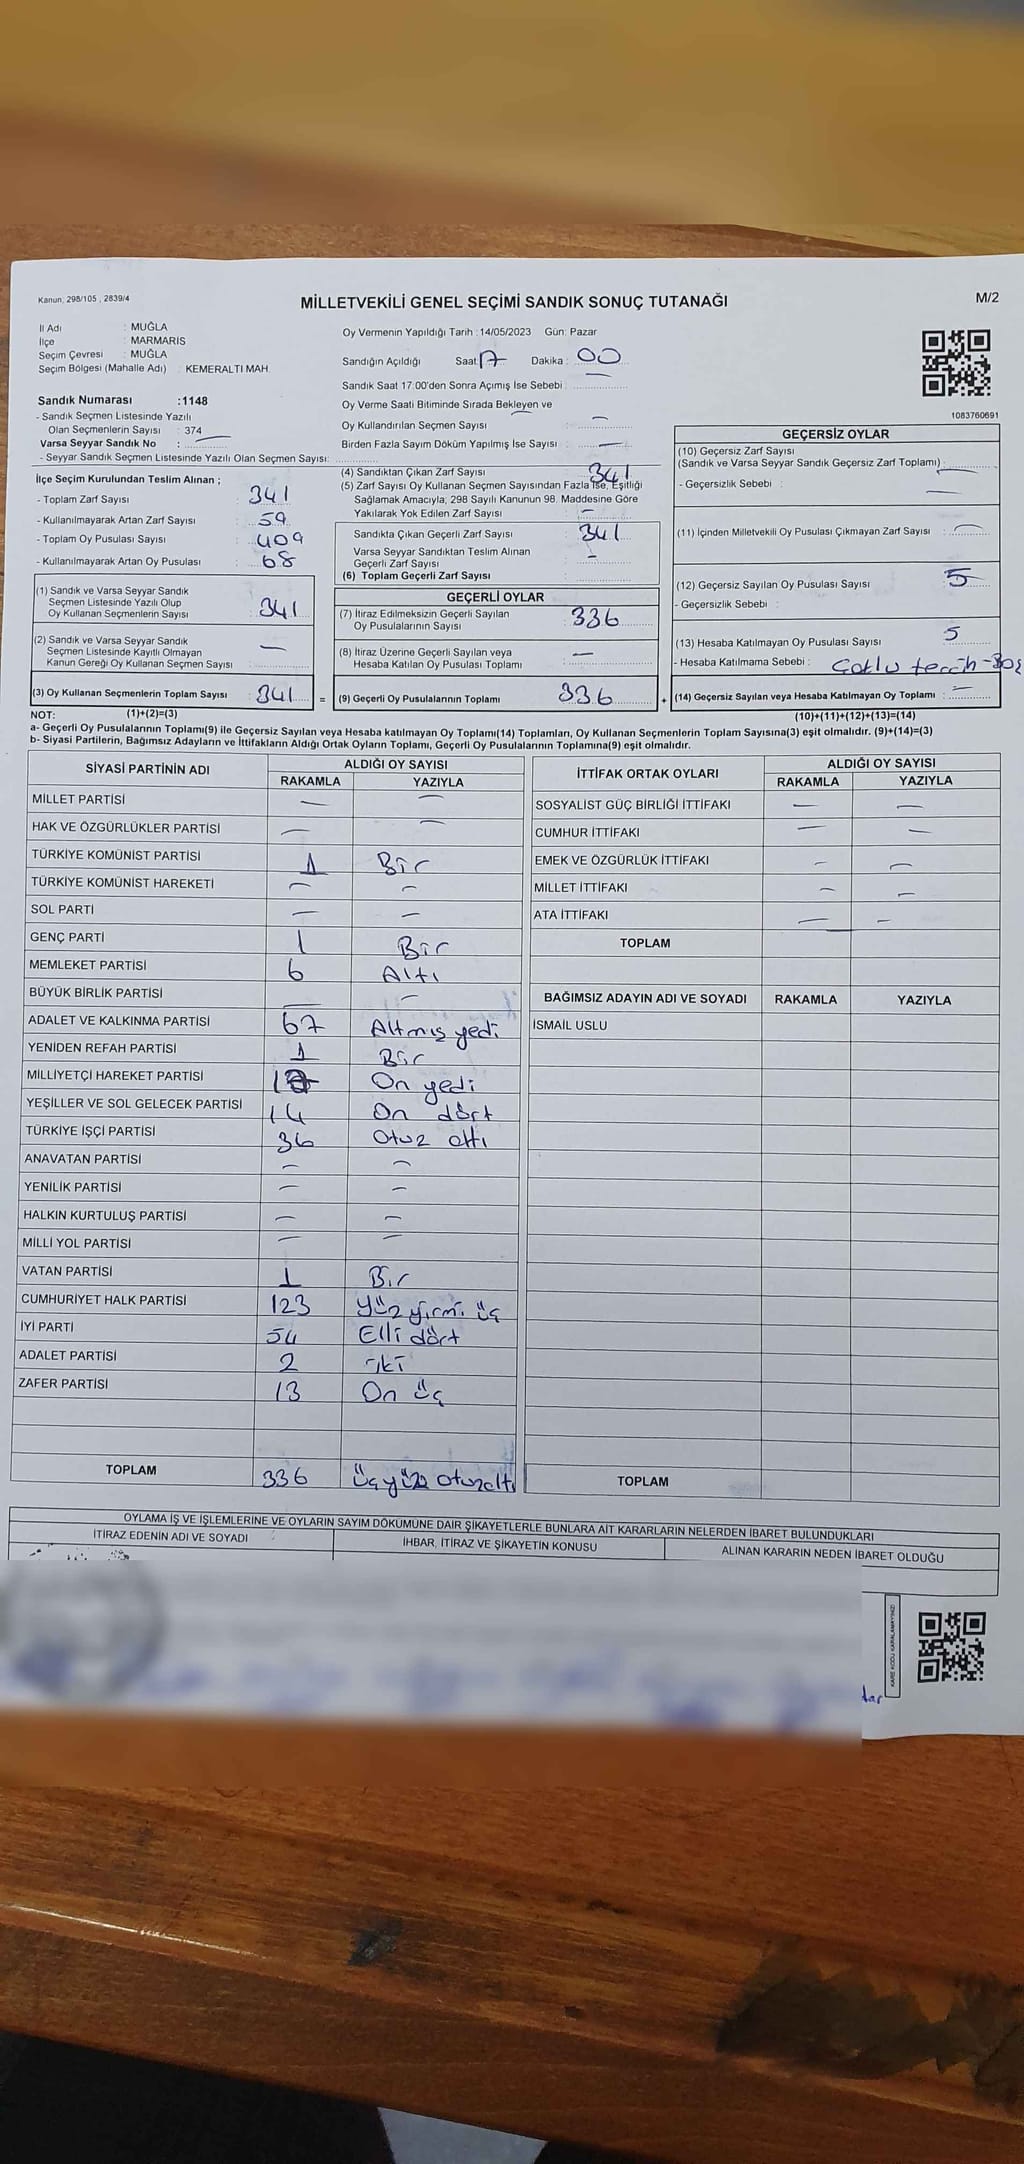 Kanun; 298/105 , 2839/4
MİLLETVEKİLİ GENEL SEÇİMİ SANDIK SONUÇ TUTANAĞI
M/2
İl Adı : MUĞLA
İlçe : MARMARİS
Seçim Çevresi : MUĞLA
Seçim Bölgesi (Mahalle Adı) : KEMERALTI MAH.
Oy Vermenin Yapıldığı Tarih :14/05/2023 Gün: Pazar
Sandığın Açıldığı Saat: 17 Dakika : 00
Sandık Saat 17.00'den Sonra Açımış İse Sebebi :
Oy Verme Saati Bitiminde Sırada Bekleyen ve
Oy Kullandırılan Seçmen Sayısı : —
Birden Fazla Sayım Döküm Yapılmış İse Sayısı : —
1083760691
Sandık Numarası :1148
- Sandık Seçmen Listesinde Yazılı
Olan Seçmenlerin Sayısı : 374
Varsa Seyyar Sandık No : —
- Seyyar Sandık Seçmen Listesinde Yazılı Olan Seçmen Sayısı:
İlçe Seçim Kurulundan Teslim Alınan ;
- Toplam Zarf Sayısı : 341
- Kullanılmayarak Artan Zarf Sayısı : 59
- Toplam Oy Pusulası Sayısı : 409
- Kullanılmayarak Artan Oy Pusulası : 68
(1) Sandık ve Varsa Seyyar Sandık
Seçmen Listesinde Yazılı Olup
Oy Kullanan Seçmenlerin Sayısı : 341
(2) Sandık ve Varsa Seyyar Sandık
Seçmen Listesinde Kayıtlı Olmayan
Kanun Gereği Oy Kullanan Seçmen Sayısı : —
(3) Oy Kullanan Seçmenlerin Toplam Sayısı : 341 =
(4) Sandıktan Çıkan Zarf Sayısı : 341
(5) Zarf Sayısı Oy Kullanan Seçmen Sayısından Fazla İse, Eşitliği
Sağlamak Amacıyla; 298 Sayılı Kanunun 98. Maddesine Göre
Yakılarak Yok Edilen Zarf Sayısı : —
Sandıkta Çıkan Geçerli Zarf Sayısı : 341
Varsa Seyyar Sandıktan Teslim Alınan
Geçerli Zarf Sayısı : —
(6) Toplam Geçerli Zarf Sayısı :
GEÇERLİ OYLAR
(7) İtiraz Edilmeksizin Geçerli Sayılan
Oy Pusulalarının Sayısı : 336
(8) İtiraz Üzerine Geçerli Sayılan veya
Hesaba Katılan Oy Pusulası Toplamı : —
(9) Geçerli Oy Pusulalarının Toplamı : 336 +
GEÇERSİZ OYLAR
(10) Geçersiz Zarf Sayısı
(Sandık ve Varsa Seyyar Sandık Geçersiz Zarf Toplamı) :
- Geçersizlik Sebebi : —
(11) İçinden Milletvekili Oy Pusulası Çıkmayan Zarf Sayısı : —
(12) Geçersiz Sayılan Oy Pusulası Sayısı : 5
- Geçersizlik Sebebi :
(13) Hesaba Katılmayan Oy Pusulası Sayısı : 5
- Hesaba Katılmama Sebebi : Çoklu tercih-Boş
(14) Geçersiz Sayılan veya Hesaba Katılmayan Oy Toplamı : —
NOT: (1)+(2)=(3)
(10)+(11)+(12)+(13)=(14)
a- Geçerli Oy Pusulalarının Toplamı(9) ile Geçersiz Sayılan veya Hesaba katılmayan Oy Toplamı(14) Toplamları, Oy Kullanan Seçmenlerin Toplam Sayısına(3) eşit olmalıdır. (9)+(14)=(3)
b- Siyasi Partilerin, Bağımsız Adayların ve İttifakların Aldığı Ortak Oyların Toplamı, Geçerli Oy Pusulalarının Toplamına(9) eşit olmalıdır.
SİYASİ PARTİNİN ADI ALDIĞI OY SAYISI
RAKAMLA YAZIYLA
MİLLET PARTİSİ — —
HAK VE ÖZGÜRLÜKLER PARTİSİ — —
TÜRKİYE KOMÜNİST PARTİSİ 1 Bir
TÜRKİYE KOMÜNİST HAREKETİ — —
SOL PARTİ — —
GENÇ PARTİ 1 Bir
MEMLEKET PARTİSİ 6 Altı
BÜYÜK BİRLİK PARTİSİ — —
ADALET VE KALKINMA PARTİSİ 67 Altmış yedi
YENİDEN REFAH PARTİSİ 1 Bir
MİLLİYETÇİ HAREKET PARTİSİ 17 On yedi
YEŞİLLER VE SOL GELECEK PARTİSİ 14 On dört
TÜRKİYE İŞÇİ PARTİSİ 36 Otuz altı
ANAVATAN PARTİSİ — —
YENİLİK PARTİSİ — —
HALKIN KURTULUŞ PARTİSİ — —
MİLLİ YOL PARTİSİ — —
VATAN PARTİSİ 1 Bir
CUMHURİYET HALK PARTİSİ 123 Yüz yirmi üç
İYİ PARTİ 54 Elli dört
ADALET PARTİSİ 2 iki
ZAFER PARTİSİ 13 On üç
TOPLAM 336 üç yüz otuzaltı
İTTİFAK ORTAK OYLARI ALDIĞI OY SAYISI
RAKAMLA YAZIYLA
SOSYALİST GÜÇ BİRLİĞİ İTTİFAKI — —
CUMHUR İTTİFAKI — —
EMEK VE ÖZGÜRLÜK İTTİFAKI — —
MİLLET İTTİFAKI — —
ATA İTTİFAKI — —
TOPLAM
BAĞIMSIZ ADAYIN ADI VE SOYADI RAKAMLA YAZIYLA
İSMAİL USLU
TOPLAM
OYLAMA İŞ VE İŞLEMLERİNE VE OYLARIN SAYIM DÖKÜMÜNE DAİR ŞİKAYETLERLE BUNLARA AİT KARARLARIN NELERDEN İBARET BULUNDUKLARI
İTİRAZ EDENİN ADI VE SOYADI
İHBAR, İTİRAZ VE ŞİKAYETİN KONUSU
ALINAN KARARIN NEDEN İBARET OLDUĞU
KARE KODU KARALAMAYINIZ!